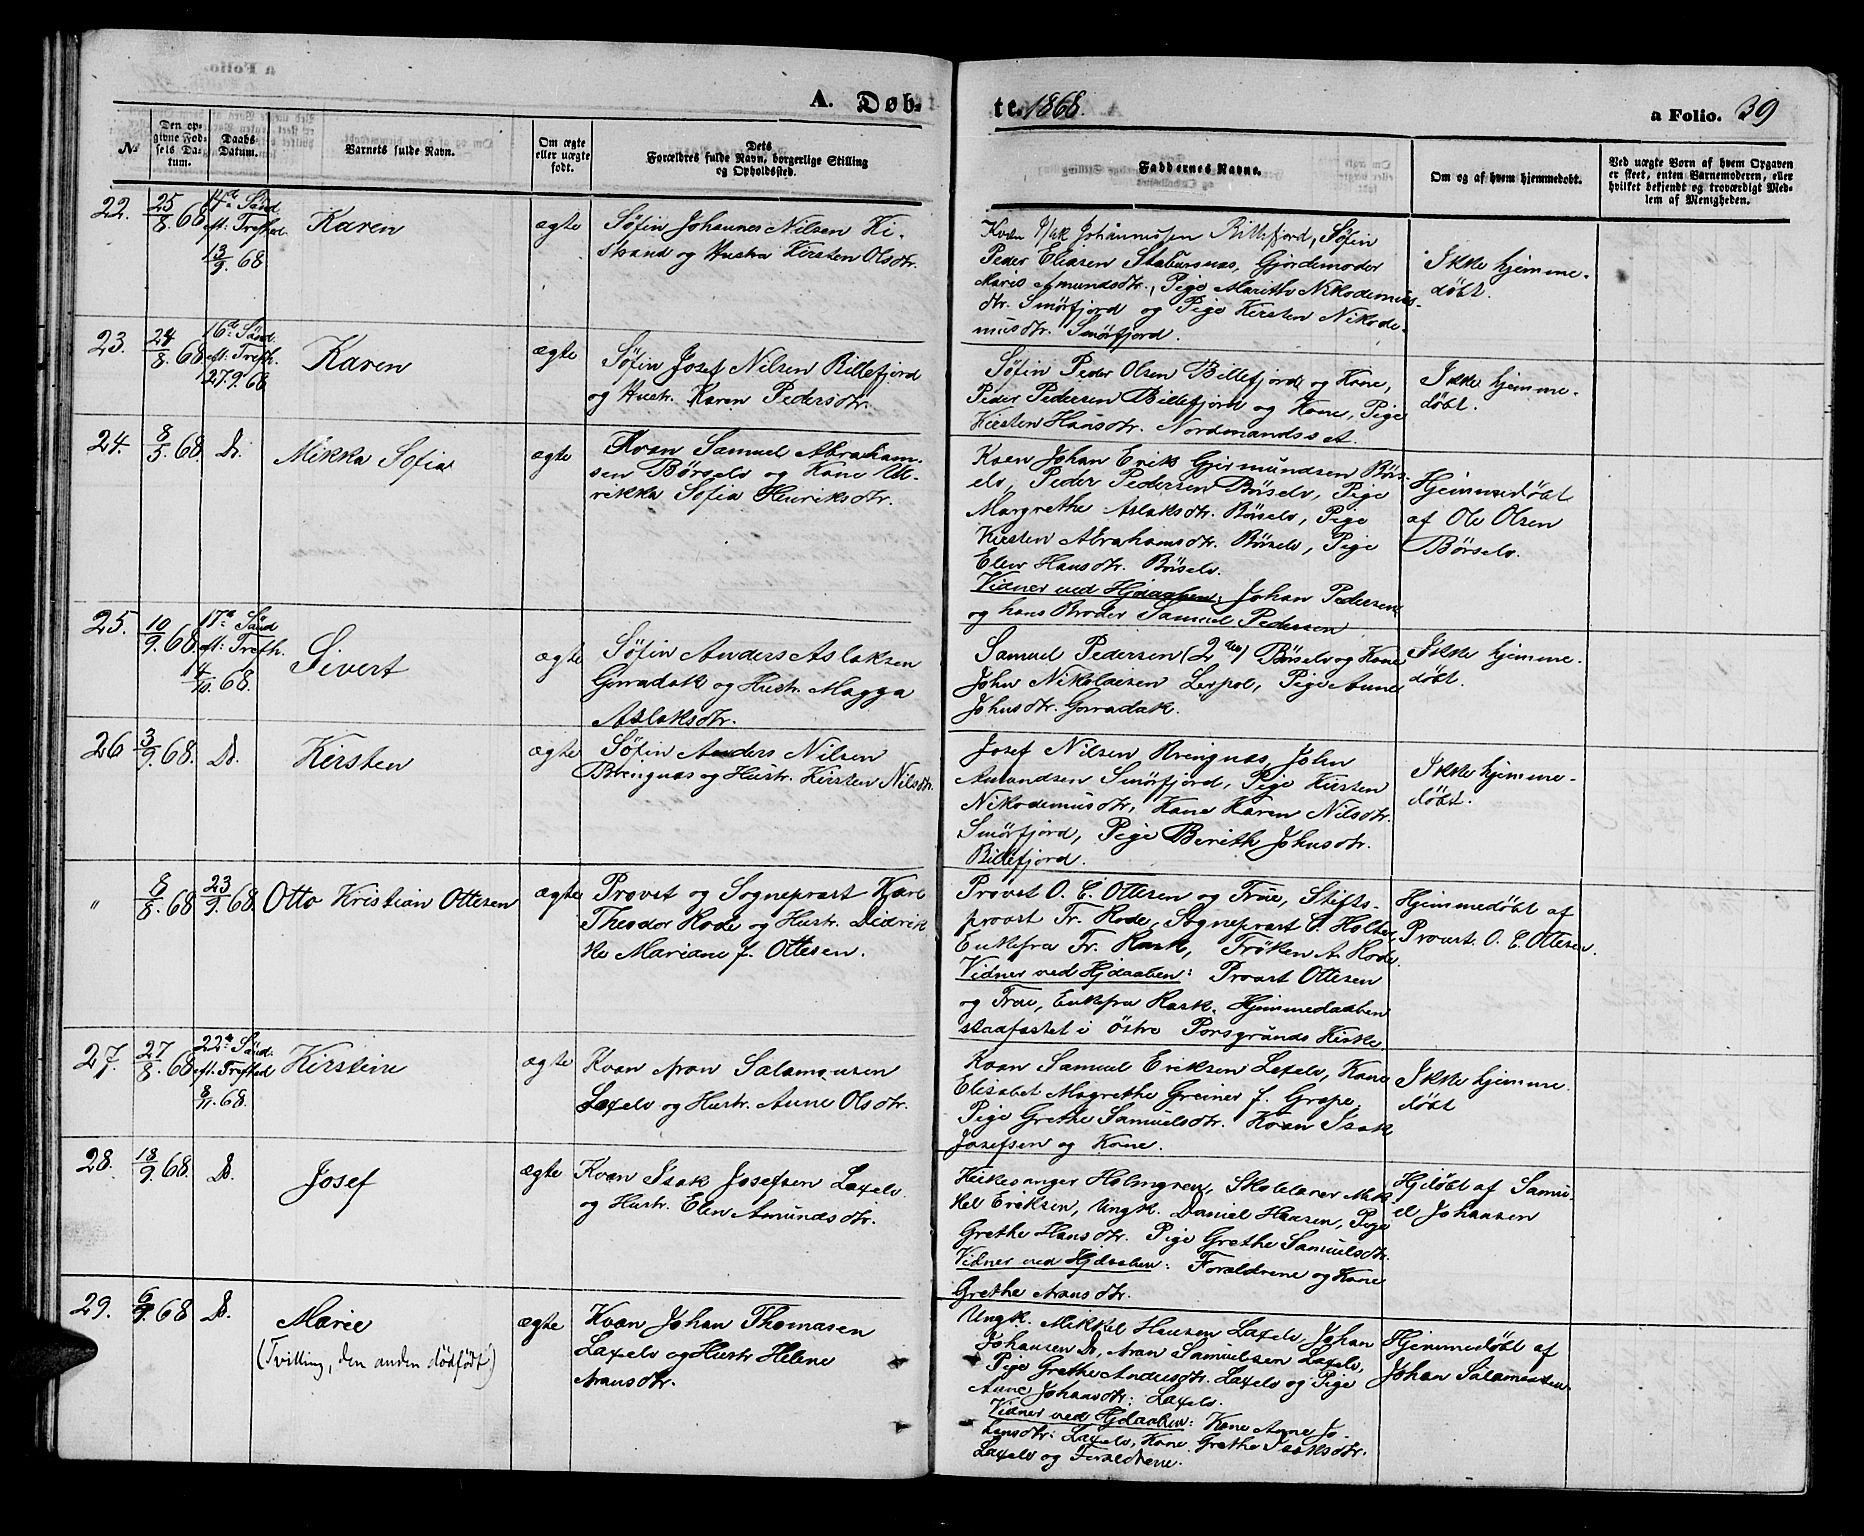 A. Døb-
te. 1868.
a Folio. 39
№
Den op-
givne Fød-
sels Da-
tum.
Daabs
Datum.
Barnets fulde Navn.
Om ægte
eller uægte
født.
Dets
Forældres fulde Navn, borgerlige Stilling
og Opholdssted.
Faddernes Navne.
Om og af hvem hjemmedøbt.
Ved uægte Børn af hvem Opgaven
er skeet, enten Barnemoderen, eller
hvilket bekjendt og troværdigt Med-
lem af Menigheden.
22.
25/8 68
14de Sønd.
eft. Trefhed.
13/9 68
Karen
ægte
Søfin Johannes Nilsen Ki-
strand og Hustru Kirsten Olsdtr.
Kvæn Johannessen Billefjord, Søfin
Peder Eliasen Stabursnæs, Gjordemoder
Maris Amundsdtr., Pige Marith Nikodemus-
dtr. Smørfjord og Pige Kirsten Nikode-
musdtr. Smørfjord.
Ikke hjemme-
døbt.
23.
24/8 68
16de Sønd.
eft. Trefh.
27.9.68
Karen
ægte
Søfin Josef Nilsen Billefjord
og Hustr. Karen Pedersdtr.
Søfin Peder Olsen Billefjord og Kone,
Peder Pedersen Billefjord og Kone, Pige
Kirsten Hansdtr. Nordmandsset.
Ikke hjemme-
døbt.
24.
8/5 68.
Do.
Mikka Sofia
ægte
Kvæn Samuel Abraham-
sen Børselv og Kone Ul-
rikka Sofia Henriksdtr.
Kvæn Johan Erik Gjermundsen Børs-
elv, Peder Pedersen Børselv, Pige
Margrethe Aslaksdtr. Børselv, Pige
Kirsten Abrahamsdtr. Børselv, Pige
Elen Hansdtr. Børselv.
Vidner ved Hjdaaben: Johan Pedersen
og hans Broder Samuel Pedersen
Hjemmedøbt
af Ole Olsen
Børselv.
25.
10/9 68
17de Sønd
eft. Trefh.
14/10 68.
Sivert
ægte
Søfin Anders Aslaksen
Goradak og Hustr. Magga
Aslaksdtr.
Samuel Pedersen (2den) Børselv og Kone
John Nikolaisen Lerpol, Pige Anne
Johnsdtr. Goradak.
Ikke hjemme-
døbt.
26
3/9 68.
Do.
Kirsten
ægte
Søfin Anders Nilsen
Brengnæs og Hustr. Kirsten Nilsdtr.
Josef Nilsen Brengnæs, John
Amundsen Smørfjord, Pige Kirsten
Nikodemusdtr, Kone Karen Nilsdtr.
Smørfjord, Pige Berith Johnsdtr.
Billefjord.
Ikke hjemme-
døbt.
"
8/8 68
23/9 68
Otto Kristian Ottesen
ægte
Provst og Sognepræst Karl
Theodor Rode og Hustr. Didrik-
ke Mariane f. Ottesen.
Provst O. C. Ottesen og Frue, Stifts-
provst Fr. Rode, Sognepræst C. Holter,
Enkefru Fr. Rask, Frøken A. Rode.
Vidner ved Hjdaaben: Provst Ottesen
og Frue, Enkefru Rask. Hjemmedaaben
stadfæstet i Østre Porsgrunds Kirke.
Hjemmedøbt af
Provst. O. C. Ottesen.
27.
27/8 68
22de Sønd.
eft. Trefhed
8/11 68.
Kirstine
ægte
Kvæn Aron Salamonsen
Laxelv og Hustr. Anne Olsdtr.
Kvæn Samuel Eriksen Laxelv, Kone
Elisabet Magrethe Greiner f. Grape,
Pige Grethe Samuelsdtr. Kvæn Isak
Josefsen og Kone.
Ikke hjemme-
døbt
28.
18/9 68.
Do.
Josef
ægte
Kvæn Isak Josefsen Laxelv
og Hustr. Elen Amundsdtr.
Kirkesanger Holmgren, Skolelærer Mik-
kel Eriksen, Ungk. Daniel Hansen, Pige
Grethe Hansdtr. Pige Grethe Samuelsdtr.
Vidner ved Hjdaaben: Forældrene og Kone
Grethe Aronsdtr.
Hjdøbt af Samu-
el Johansen
29.
6/9 68
Do.
Marie
(Tvilling, den anden dødfødt)
ægte
Kvæn Johan Thomasen
Laxelv og Hustr Helene
Aronsdtr.
Ungk. Mikkel Hansen Laxelv, Johan
Johansen Do, Aron Samuelsen Laxelv,
Pige Grethe Andersdtr. Laxelv og Pige
Anne Johansdtr: Laxelv.
Vidner ved Hjdaaben: Kone Anne Jo-
hansdtr: Laxelv, Kone Grethe Isaksdtr.
Laxelv og Forældrene.
Hjemmedøbt af
Johan Salamonsen.